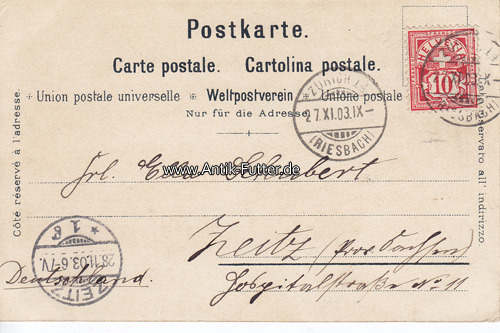 Postkarte.
Carte postale. Cartolina postale.
Union postale universelle * Weltpostverein * Unione postale
Nur für die Adresse
Côté réservé à l'adresse.
Lato riservato all' indirizzo
HELVETIA
10
ZÜRICH
27.XI.03.IX–
(RIESBACH)
RIESBACH)
www.Antik-Futter.de
Frl. Schubert
Zeitz (Prov. Sachsen)
Hospitalstraße No 11
Deutschland.
ZEITZ
28.11.03.6-7V.
* 1 g